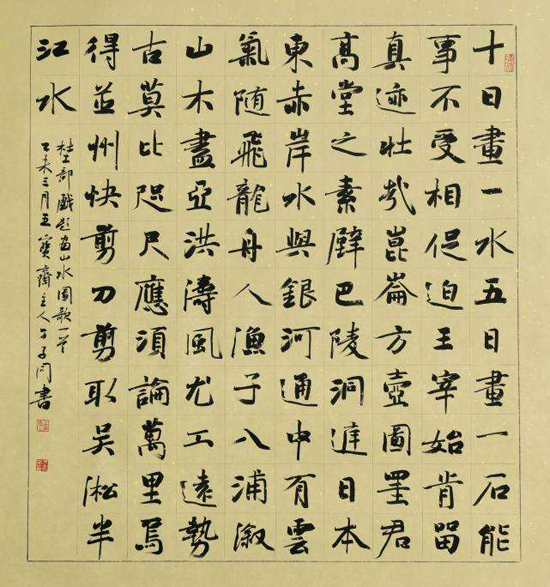 十日畫一水五日畫一石能
事不受相促迫王宰始肯留
真迹壮哉崑崙方壺圖罣君
髙堂之素壁巴陵洞庭日本
東赤岸水與銀河通中有雲
氣随飛龍舟人漁子入浦溆
山木盡亞洪濤風尤工遠勢
古莫比咫尺應須論萬里焉
得並州快剪刀剪取吴淞半
江水
杜工部戲題畫山水圖歌一首
乙未三月五寶齋主人子書